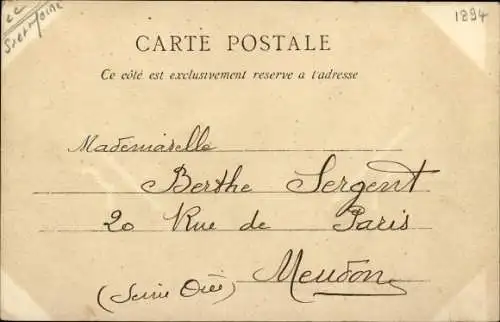 1894
CARTE POSTALE
Ce côté est exclusivement reserve a l'adresse
Mademoiselle
Berthe Sergent
20 Rue de Paris
Meudon
(Seine Oise)